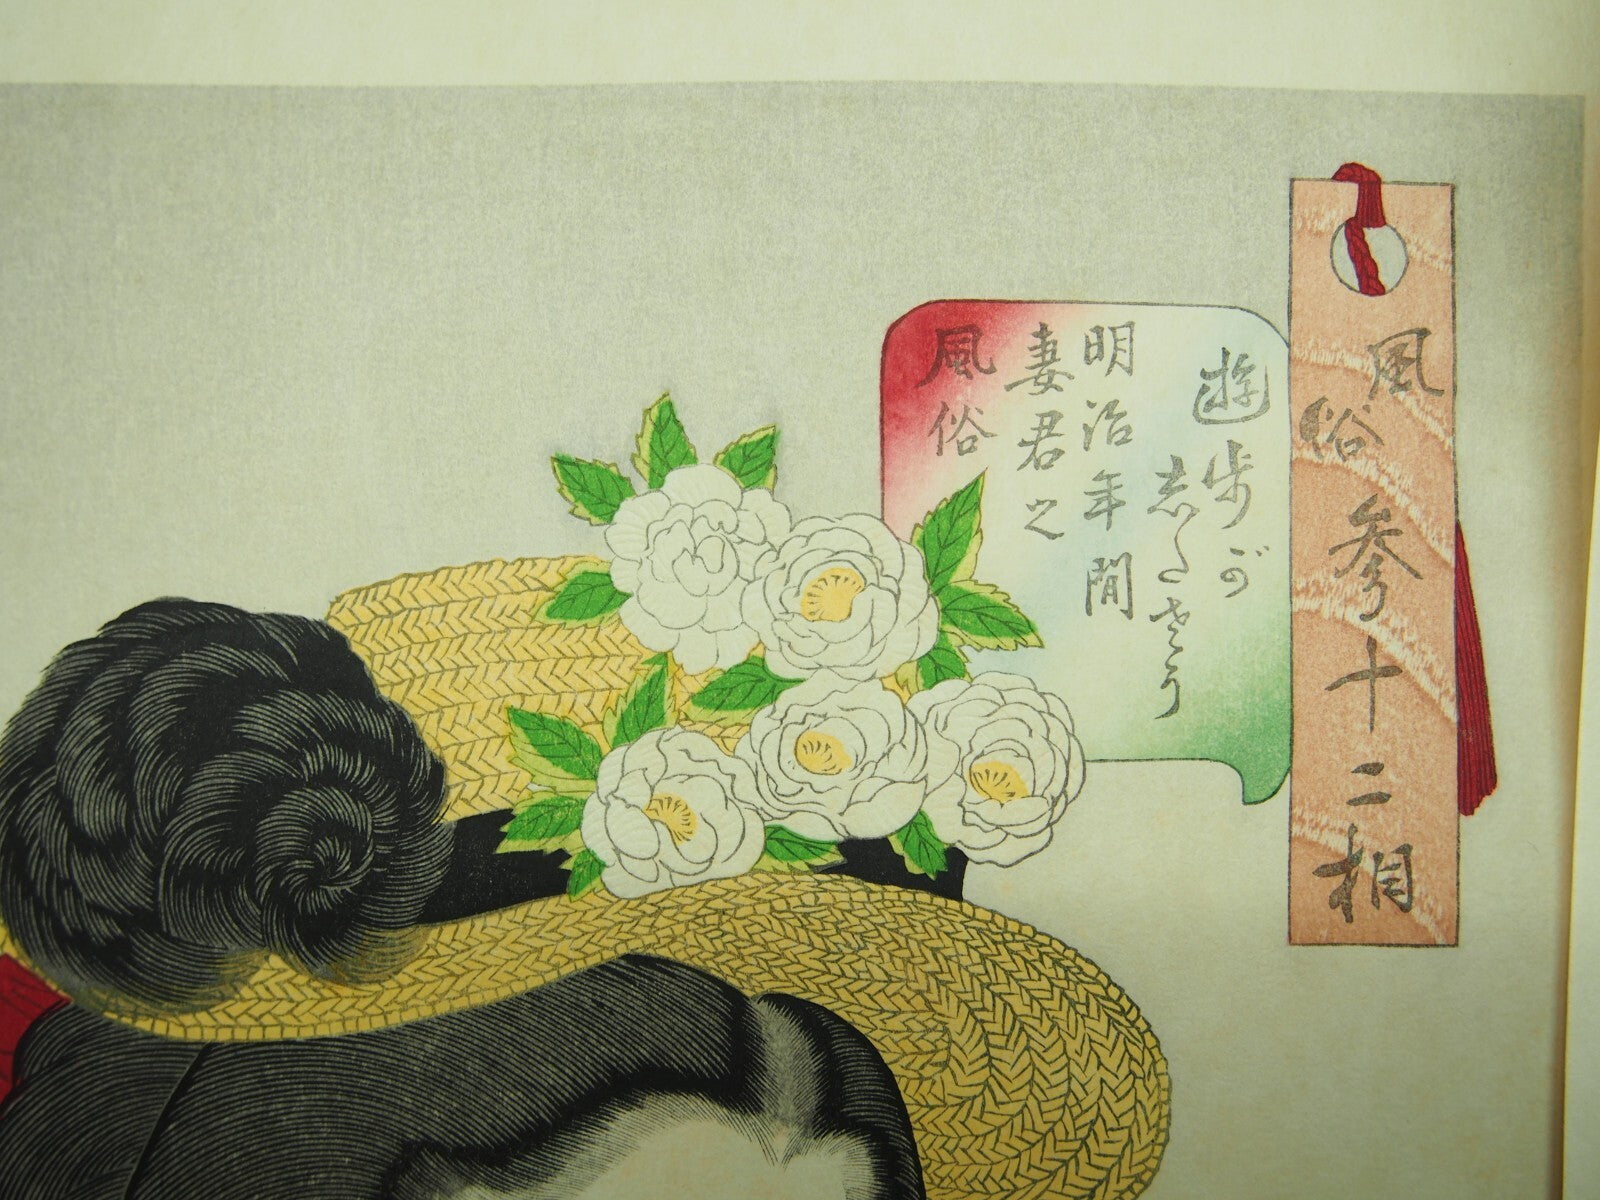 風俗参十二相
遊歩がしたさう
明治年間
妻君之
風俗